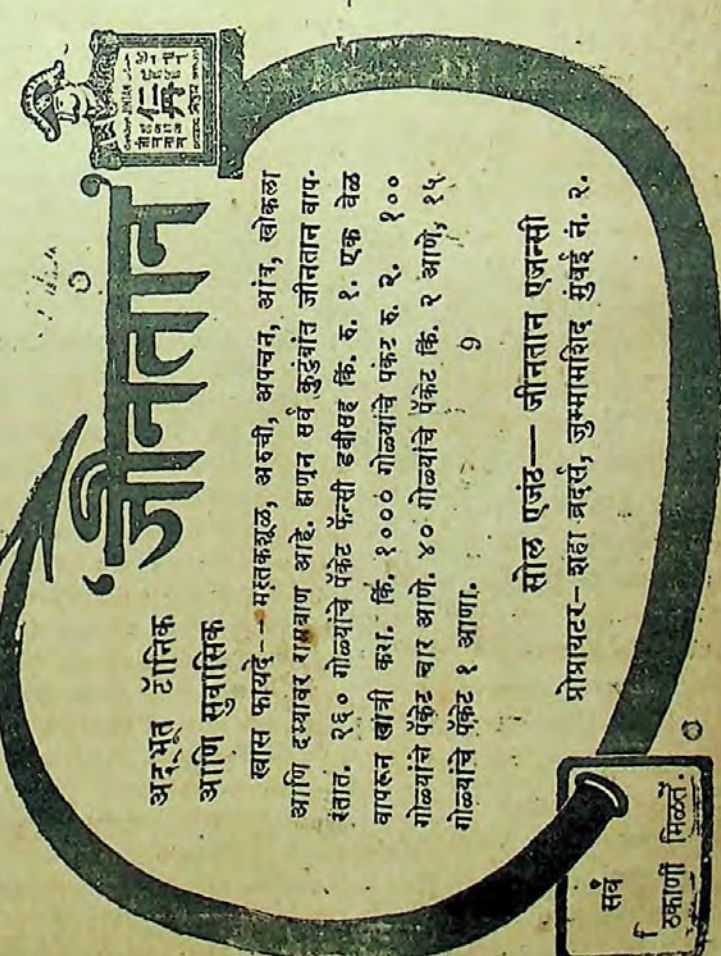 'जीनतान'
JINTAN
仁丹
अद्‌भूत टॉनिक
आणि सुवासिक
खास फायदे-- मस्तकशूळ, अरुची, अपचन, आंव, खोकला
आणि दम्यावर रामबाण आहे. ह्मणून सर्व कुटुंबांत जीनतान वाप-
रंतात. २६० गोळ्यांचे पॅकेट फॅन्सी डबीसह किं. रु. १. एक वेळ
वापरून खात्री करा. किं. १००० गोळ्यांचे पॅकेट रु. २. १००
गोळ्यांचे पॅकेट चार आणे. ४० गोळ्यांचे पॅकेट किं. २ आणे, १५
गोळ्यांचे पॅकेट १ आणा.
सोल एजंट— जीनतान एजन्सी
प्रोप्रायटर- शहा ब्रदर्स, जुम्मामशिद मुंबई नं. २.
सर्व
ठिकाणीं मिळतें.